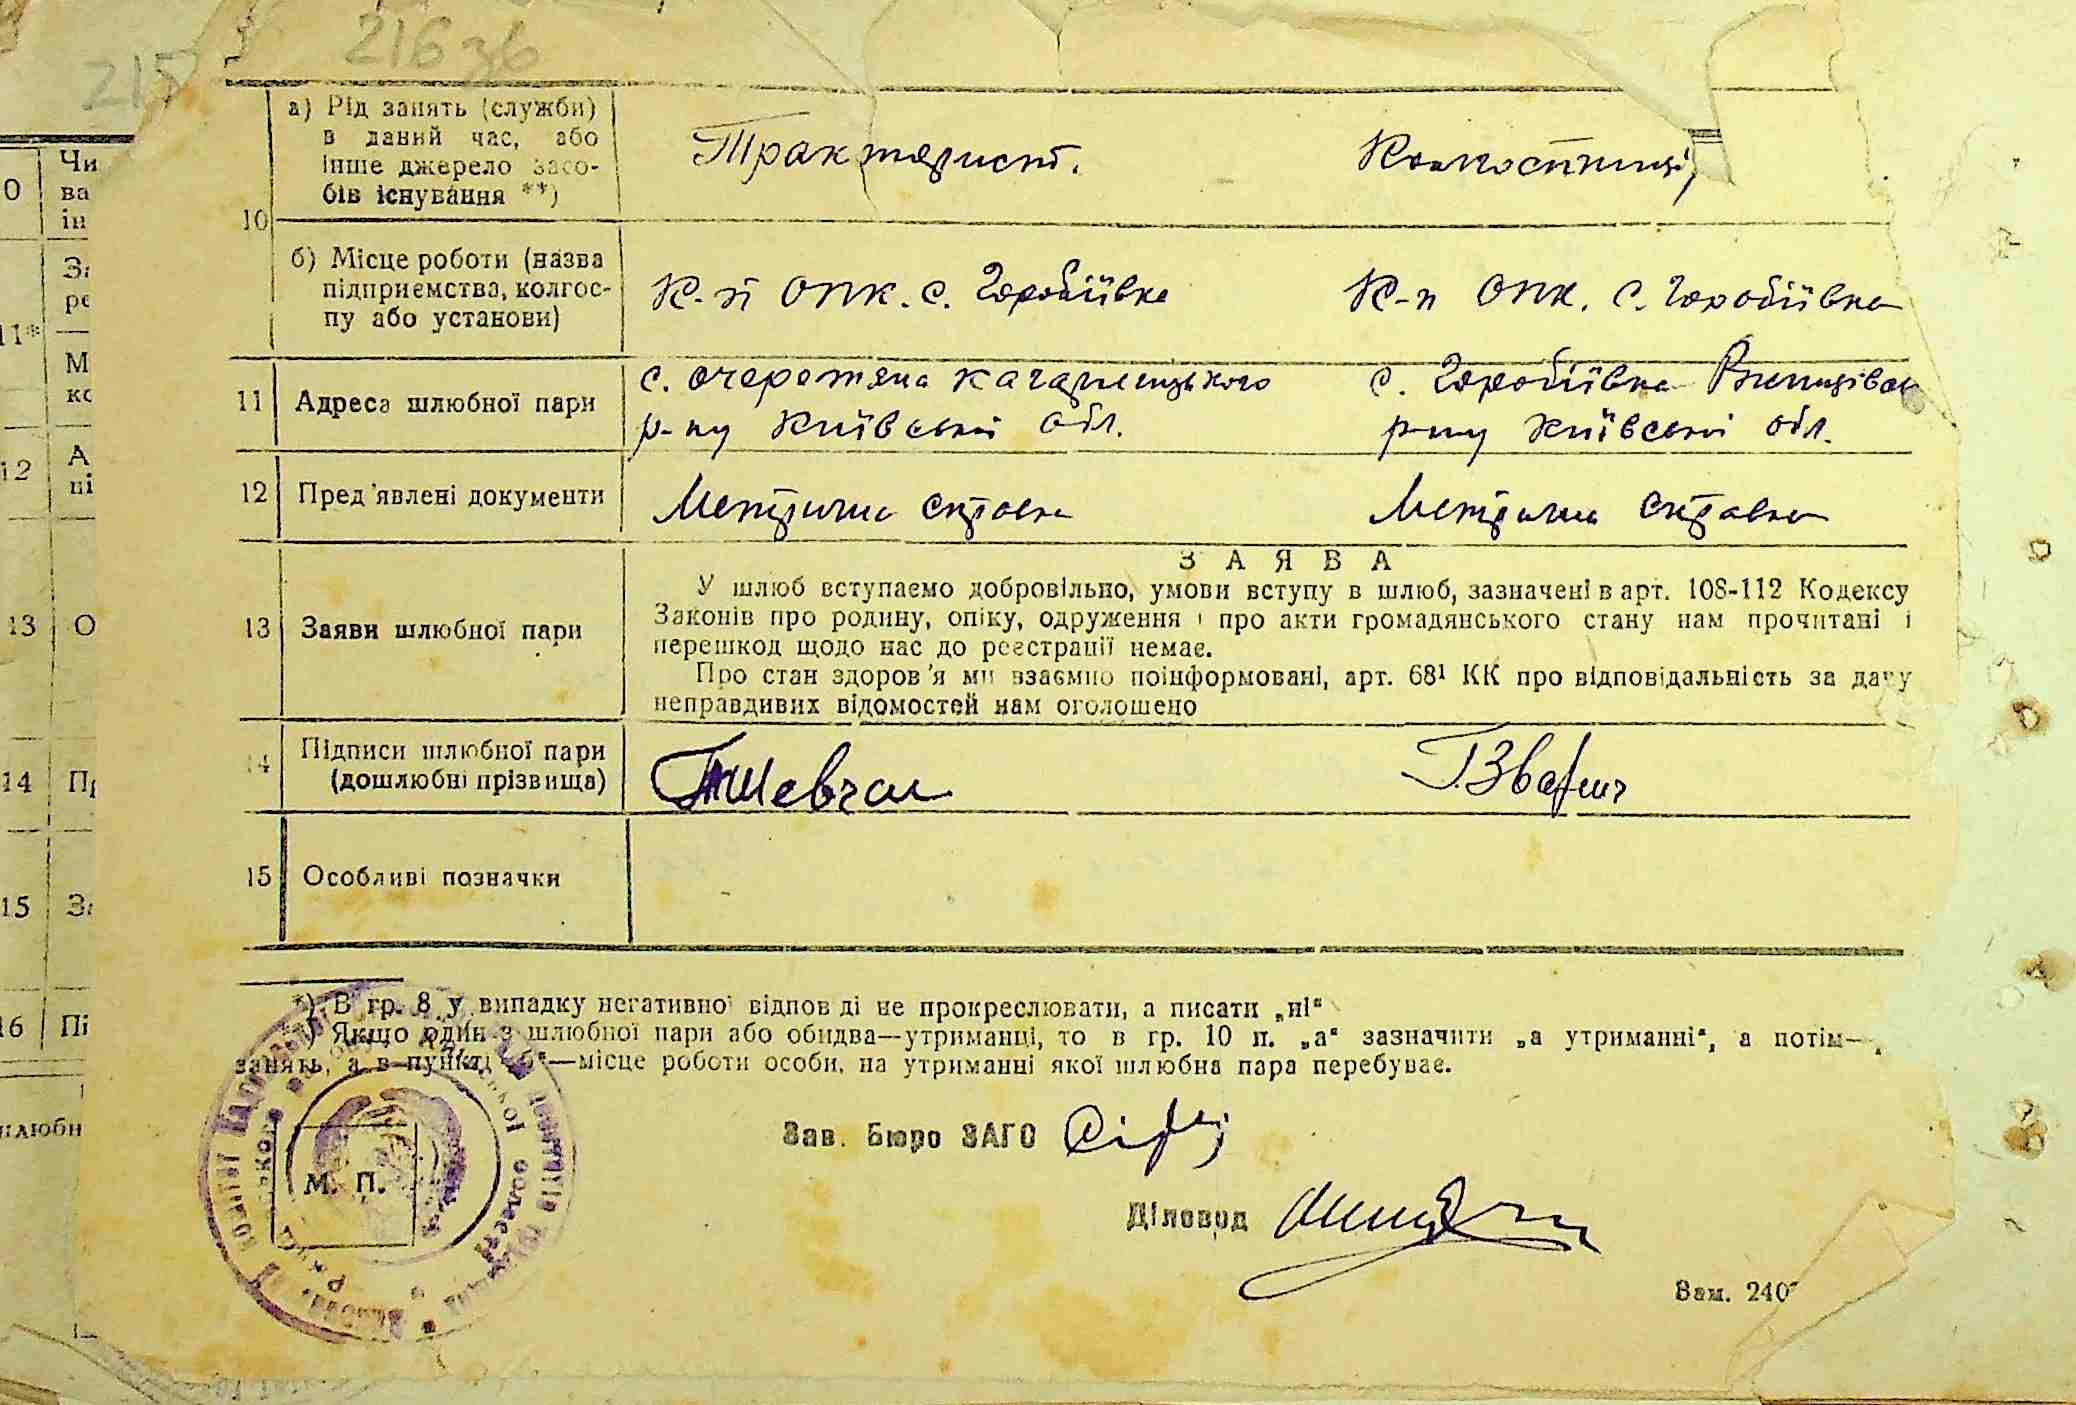 215
216 зв
а) Рід занять (служби)
в даний час, або
інше джерело засо-
бів існування **)
Тракторист.
Колгоспниця
10
б) Місце роботи (назва
підприємства, колгос-
пу або установи)
К-п ОПК. с. Горобіївка
К-п ОПК. с. Горобіївка
11
Адреса шлюбної пари
с. Очеретяна Кагарлицького
р-ну Київської обл.
с. Горобіївка
р-ну Київської обл.
12
Пред'явлені документи
Метрична справка
Метрична справка
13
Заяви шлюбної пари
ЗАЯВА
У шлюб вступаємо добровільно, умови вступу в шлюб, зазначені в арт. 108-112 Кодексу
Законів про родину, опіку, одруження і про акти громадянського стану нам прочитані і
перешкод щодо нас до реєстрації немає.
Про стан здоров'я ми взаємно поінформовані, арт. 68¹ КК про відповідальність за дачу
неправдивих відомостей нам оголошено
14
Підписи шлюбної пари
(дошлюбні прізвища)
Шевчал
Г.Зварич
15
Особливі позначки
*) В гр. 8 у випадку негативної відпов ді не прокреслювати, а писати „ні“
) Якщо один з шлюбної пари або обидва—утриманці, то в гр. 10 п. „а“ зазначити „а утриманні“, а потім—
занять, а в пункті „б“—місце роботи особи, на утриманні якої шлюбна пара перебуває.
Зав. Бюро ЗАГО
М. П.
Діловод
Зам. 240
0
Чи
ва
ін
За
ре
11*
М
ко
12
А
ні
13
О
14
Пр
15
За
16
Пі
шлюбн